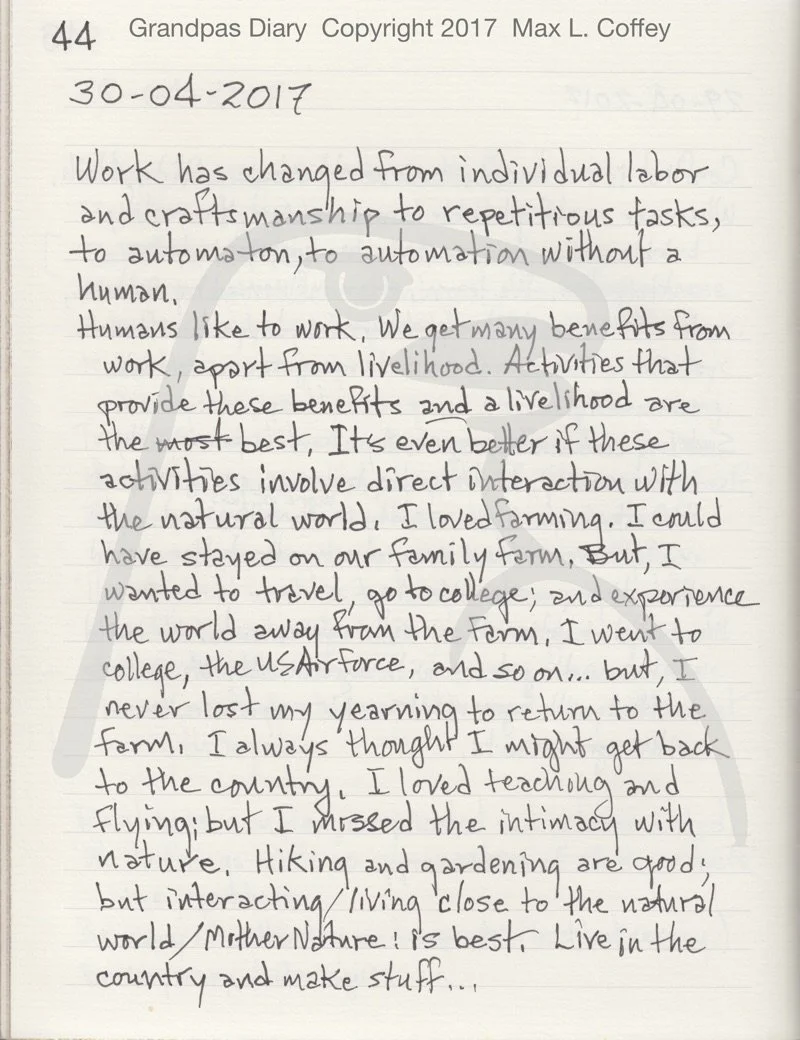 44 Grandpas Diary Copyright 2017 Max L. Coffey
30-04-2017
Work has changed from individual labor
and craftsmanship to repetitious tasks,
to automaton, to automation without a
human.
Humans like to work. We get many benefits from
work, apart from livelihood. Activities that
provide these benefits and a livelihood are
the most best. It's even better if these
activities involve direct interaction with
the natural world. I loved farming. I could
have stayed on our family farm. But, I
wanted to travel, go to college; and experience
the world away from the farm. I went to
college, the US Air Force, and so on... but, I
never lost my yearning to return to the
farm. I always thought I might get back
to the country. I loved teaching and
flying; but I missed the intimacy with
nature. Hiking and gardening are good;
but interacting/living close to the natural
world/Mother Nature! is best. Live in the
country and make stuff...